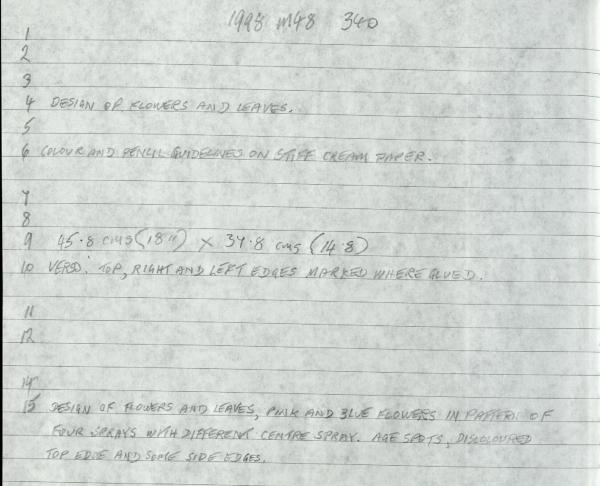 1998 M48 340
1
2
3
4 DESIGN OF FLOWERS AND LEAVES.
5
6 COLOUR AND PENCIL GUIDELINES ON STIFF CREAM PAPER.
7
8
9 45.8 cms (18") × 37.8 cms (14.8)
10 VERSO: TOP, RIGHT AND LEFT EDGES MARKED WHERE GLUED.
11
12
14
15 DESIGN OF FLOWERS AND LEAVES, PINK AND BLUE FLOWERS IN PATTERN OF
FOUR SPRAYS WITH DIFFERENT CENTRE SPRAY. AGE SPOTS, DISCOLOURED
TOP EDGE AND SOME SIDE EDGES.